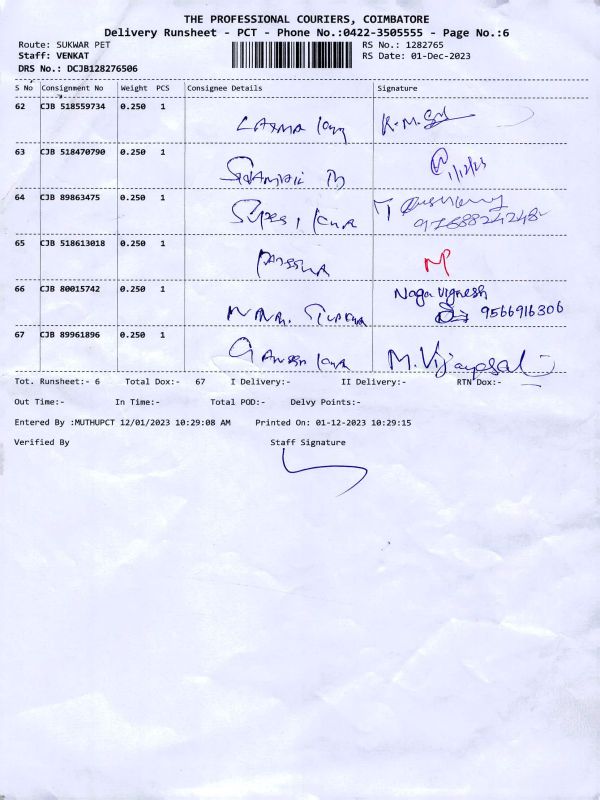 THE PROFESSIONAL COURIERS, COIMBATORE
Delivery Runsheet - PCT - Phone No.:0422-3505555 - Page No.:6
Route: SUKWAR PET RS No.: 1282765
Staff: VENKAT RS Date: 01-Dec-2023
DRS No.: DCJB128276506
S No Consignment No Weight PCS Consignee Details Signature
62 CJB 518559734 0.250 1
K-M.
63 CJB 518470790 0.250 1
1/12/23
64 CJB 89863475 0.250 1
65 CJB 518613018 0.250 1
66 CJB 80015742 0.250 1 Naga Vignesh
9566916306
67 CJB 89961896 0.250 1
Ganesh M. Vijayasal
Tot. Runsheet:- 6 Total Dox:- 67 I Delivery:- II Delivery:- RTN Dox:-
Out Time:- In Time:- Total POD:- Delvy Points:-
Entered By :MUTHUPCT 12/01/2023 10:29:08 AM Printed On: 01-12-2023 10:29:15
Verified By Staff Signature